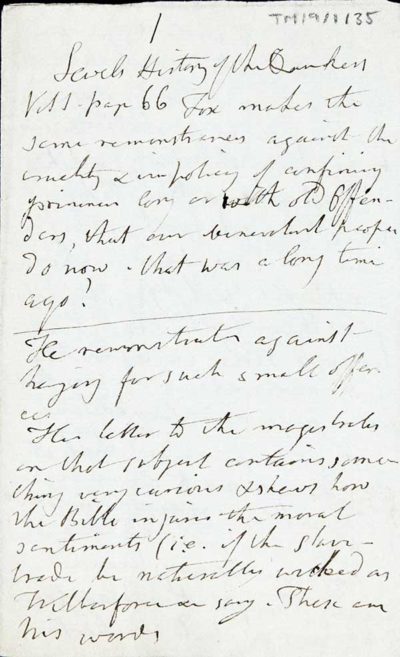 1
TM/9/1/35
Sewels History of the Quakers
Vol 1. page 66 Fox makes the
same remonstrances against the
cruelty & impolicy of confining
prisoners long or with old Offen-
ders, that our benevolent people
do now. that was a long time
ago?
He remonstrates against
hanging for such small offen
ces
His letter to the magistrates
on that subject contains some-
thing very curious & shews how
the Bible injures the moral
sentiments (i.e. if the slave-
trade be naturally wicked as
Wilberforce &c say. These are
his words